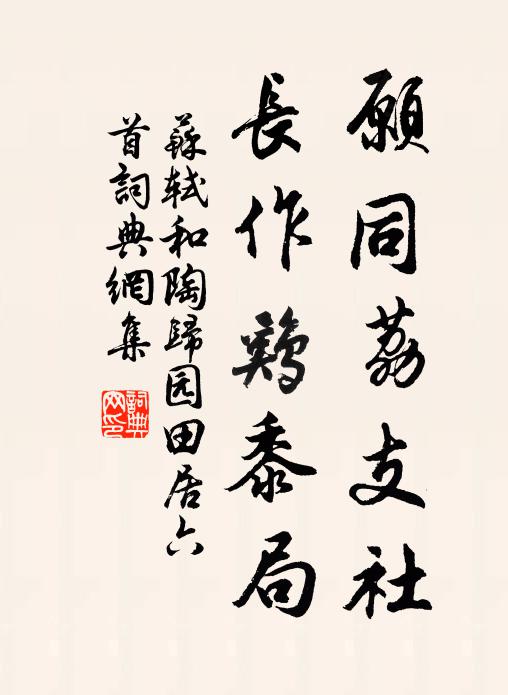 願同荔支社
長作鷄黍局
蘇軾和陶歸园田居六
首詞典網集
詞典
网印